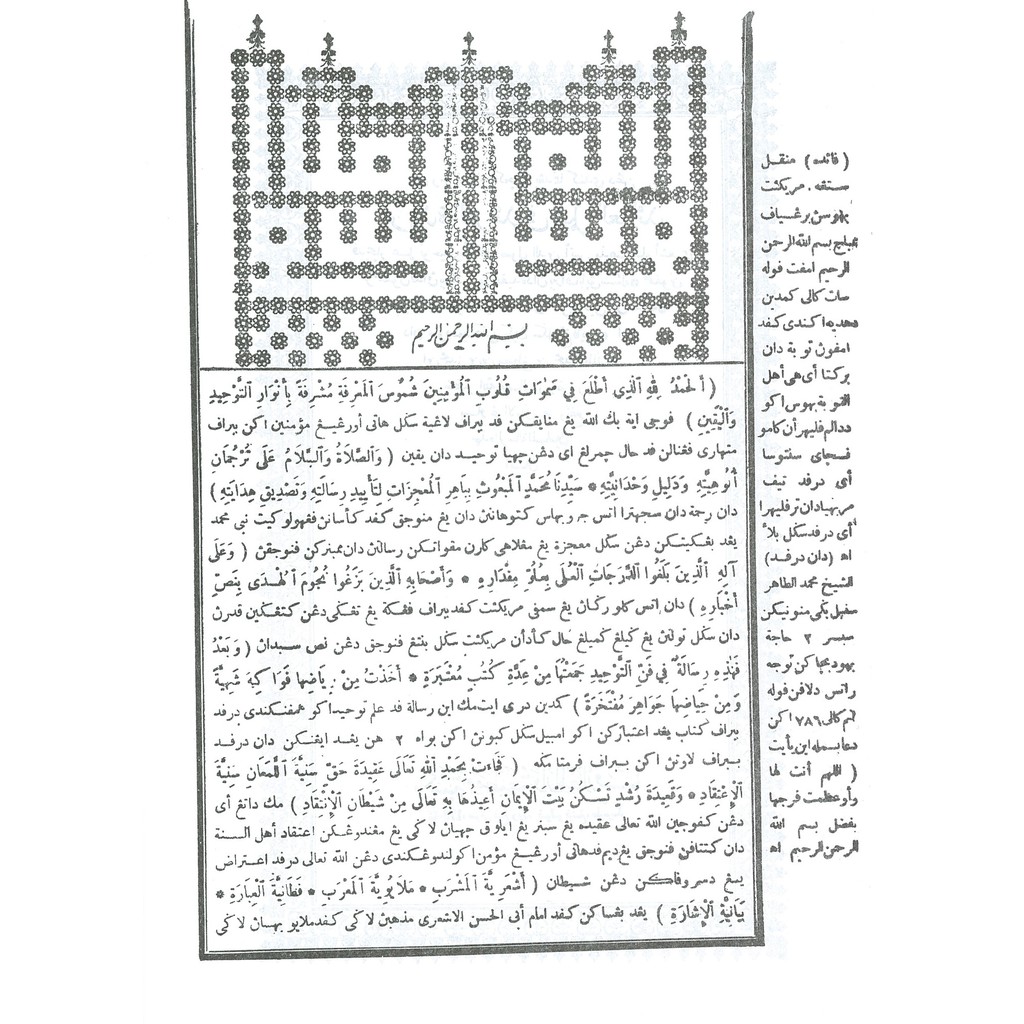 بسم الله الرحمن الرحيم
( أَلْحَمْدُ لِلّٰهِ ٱلَّذِي أَطْلَعَ فِي سَمٰوَاتِ قُلُوبِ ٱلْمُؤْمِنِينَ شُمُوسَ ٱلْمَعْرِفَةِ مُشْرِقَةً بِأَنْوَارِ ٱلتَّوْحِيدِ
وَٱلْيَقِينِ ) فوجي اية بك الله يغ منايفكن قد بيراف لاغية سكل هاتي أورغيغ مؤمنين اكن بيراف
متهاري فغنالن قد حال چمرلغ اى دغن چهيا توحيد دان يقين ( وَٱلصَّلَاةُ وَٱلسَّلَامُ عَلَى تُرْجُمَانِ
أُلُوهِيَّتِهِ وَدَلِيلِ وَحْدَانِيَّتِهِ * سَيِّدِنَا مُحَمَّدٍ ٱلْمَبْعُوثِ بِبَاهِرِ ٱلْمُعْجِزَاتِ لِتَأْيِيدِ رِسَالَتِهِ وَتَصْدِيقِ هِدَايَتِهِ )
دان رحمة دان سجهترا اتس جروبهاس كتوهانن دان يغ منوجق كفد كأسانن فغهولو كيت نبي محمد
يغد بغكيتكن دغن سكل معجزة يغ مغلاهي كارن مغواتكن رسالتن دان ممبنركن فنوجقن ( وَعَلَى
آلِهِ ٱلَّذِينَ بَلَغُوا ٱلدَّرَجَاتِ ٱلْعُلَى بِعُلُوِّ مِقْدَارِهِ * وَأَصْحَابِهِ ٱلَّذِينَ بَزَغُوا نُجُومَ ٱلْهُدَى بِنَصِّ
أَخْبَارِهِ ) دان اتس كلوركان يغ سمفي مريكئت كفد بيراف فغكة يغ تغكي دغن كتغكين قدرن
دان سكل تولنن يغ كيلغ كميلغ حال كأدأن مريكئت سكل بنتغ فنوجق دغن نص سبدان ( وَبَعْدُ
فَهٰذِهِ رِسَالَةٌ فِي فَنِّ ٱلتَّوْحِيدِ جَمَعْتُهَا مِنْ عِدَّةِ كُتُبٍ مُعْتَبَرَةٍ * أَخَذْتُ مِنْ رِيَاضِهَا فَوَاكِهَ شَهِيَّةً
وَمِنْ حِيَاضِهَا جَوَاهِرَ مُفْتَخَرَةً ) كمدين درى ايت مك اين رسالة قد علم توحيد اكو همفنكندى درفد
بيراف كتاب يغد اعتباركن اكو امبيل سكل كبونن اكن بواه ٢ هن يغد ايغنكن دان درفد
بيراف لاوتن اكن بيراف فرمتا مكه ( فَجَاءَتْ بِحَمْدِ اللهِ تَعَالَى عَقِيدَةَ حَقٍّ سَنِيَّةَ ٱللَّمَعَانِ سُنِّيَّةَ
ٱلْإِعْتِقَادِ * وَقَعِيدَةَ رُشْدٍ تَسْكُنُ بَيْتَ ٱلْإِيمَانِ أُعِيذُهَا بِهِ تَعَالَى مِنْ شَيْطَانِ ٱلْإِنْتِقَادِ ) مك داتغ أى
دغن كفوجين الله تعالى عقيده يغ سبنر يغ ايلوق چهيان لاكي يغ مغندوغكن اعتقاد أهل السنة
دان كتتافن فنوجق يغ ديم فد هاتي أورغيغ مؤمن اكو لندوغكندى دغن الله تعالى درفد اعتراض
يغ دسروفاكن دغن شيطان ( أَشْعَرِيَّةَ ٱلْمَشْرَبِ * مَلَايُوِيَّةَ ٱلْمَعْرَبِ * فَطَانِيَّةَ ٱلْعِبَارَةِ *
بَيَانِيَّةَ ٱلْإِشَارَةِ ) يغد بغساكن كفد امام أبي الحسن الاشعرى مذهبن لاكي كفد ملايو بهسان لاكي
( فائده ) منقل
ستفه مريكئت
بهوسن برغسياف
ممباچ بسم الله الرحمن
الرحيم امفت فوله
سات كالى كمدين
هديه اكندى كفد
امفون توبة دان
بركتا أى هى أهل
التوبة بهوس اكو
ددالم فليهرأن كامو
فسچاي سنتوسا
أى درفد تيف
مربهيا دان ترفليهرا
أى درفد سكل بلاء
اه (دان درفد)
الشيخ محمد الطاهر
سنبل بكي منونيكن
سبسر ٢ حاجة
يهود بچاكن توجه
راتس دلافن فوله
انم كالى ٧٨٦ اكن
دعا بسمله اين يأيت
( اللهم أنت لها
ولو عظمت فرجها
بفضل بسم الله
الرحمن الرحيم اه